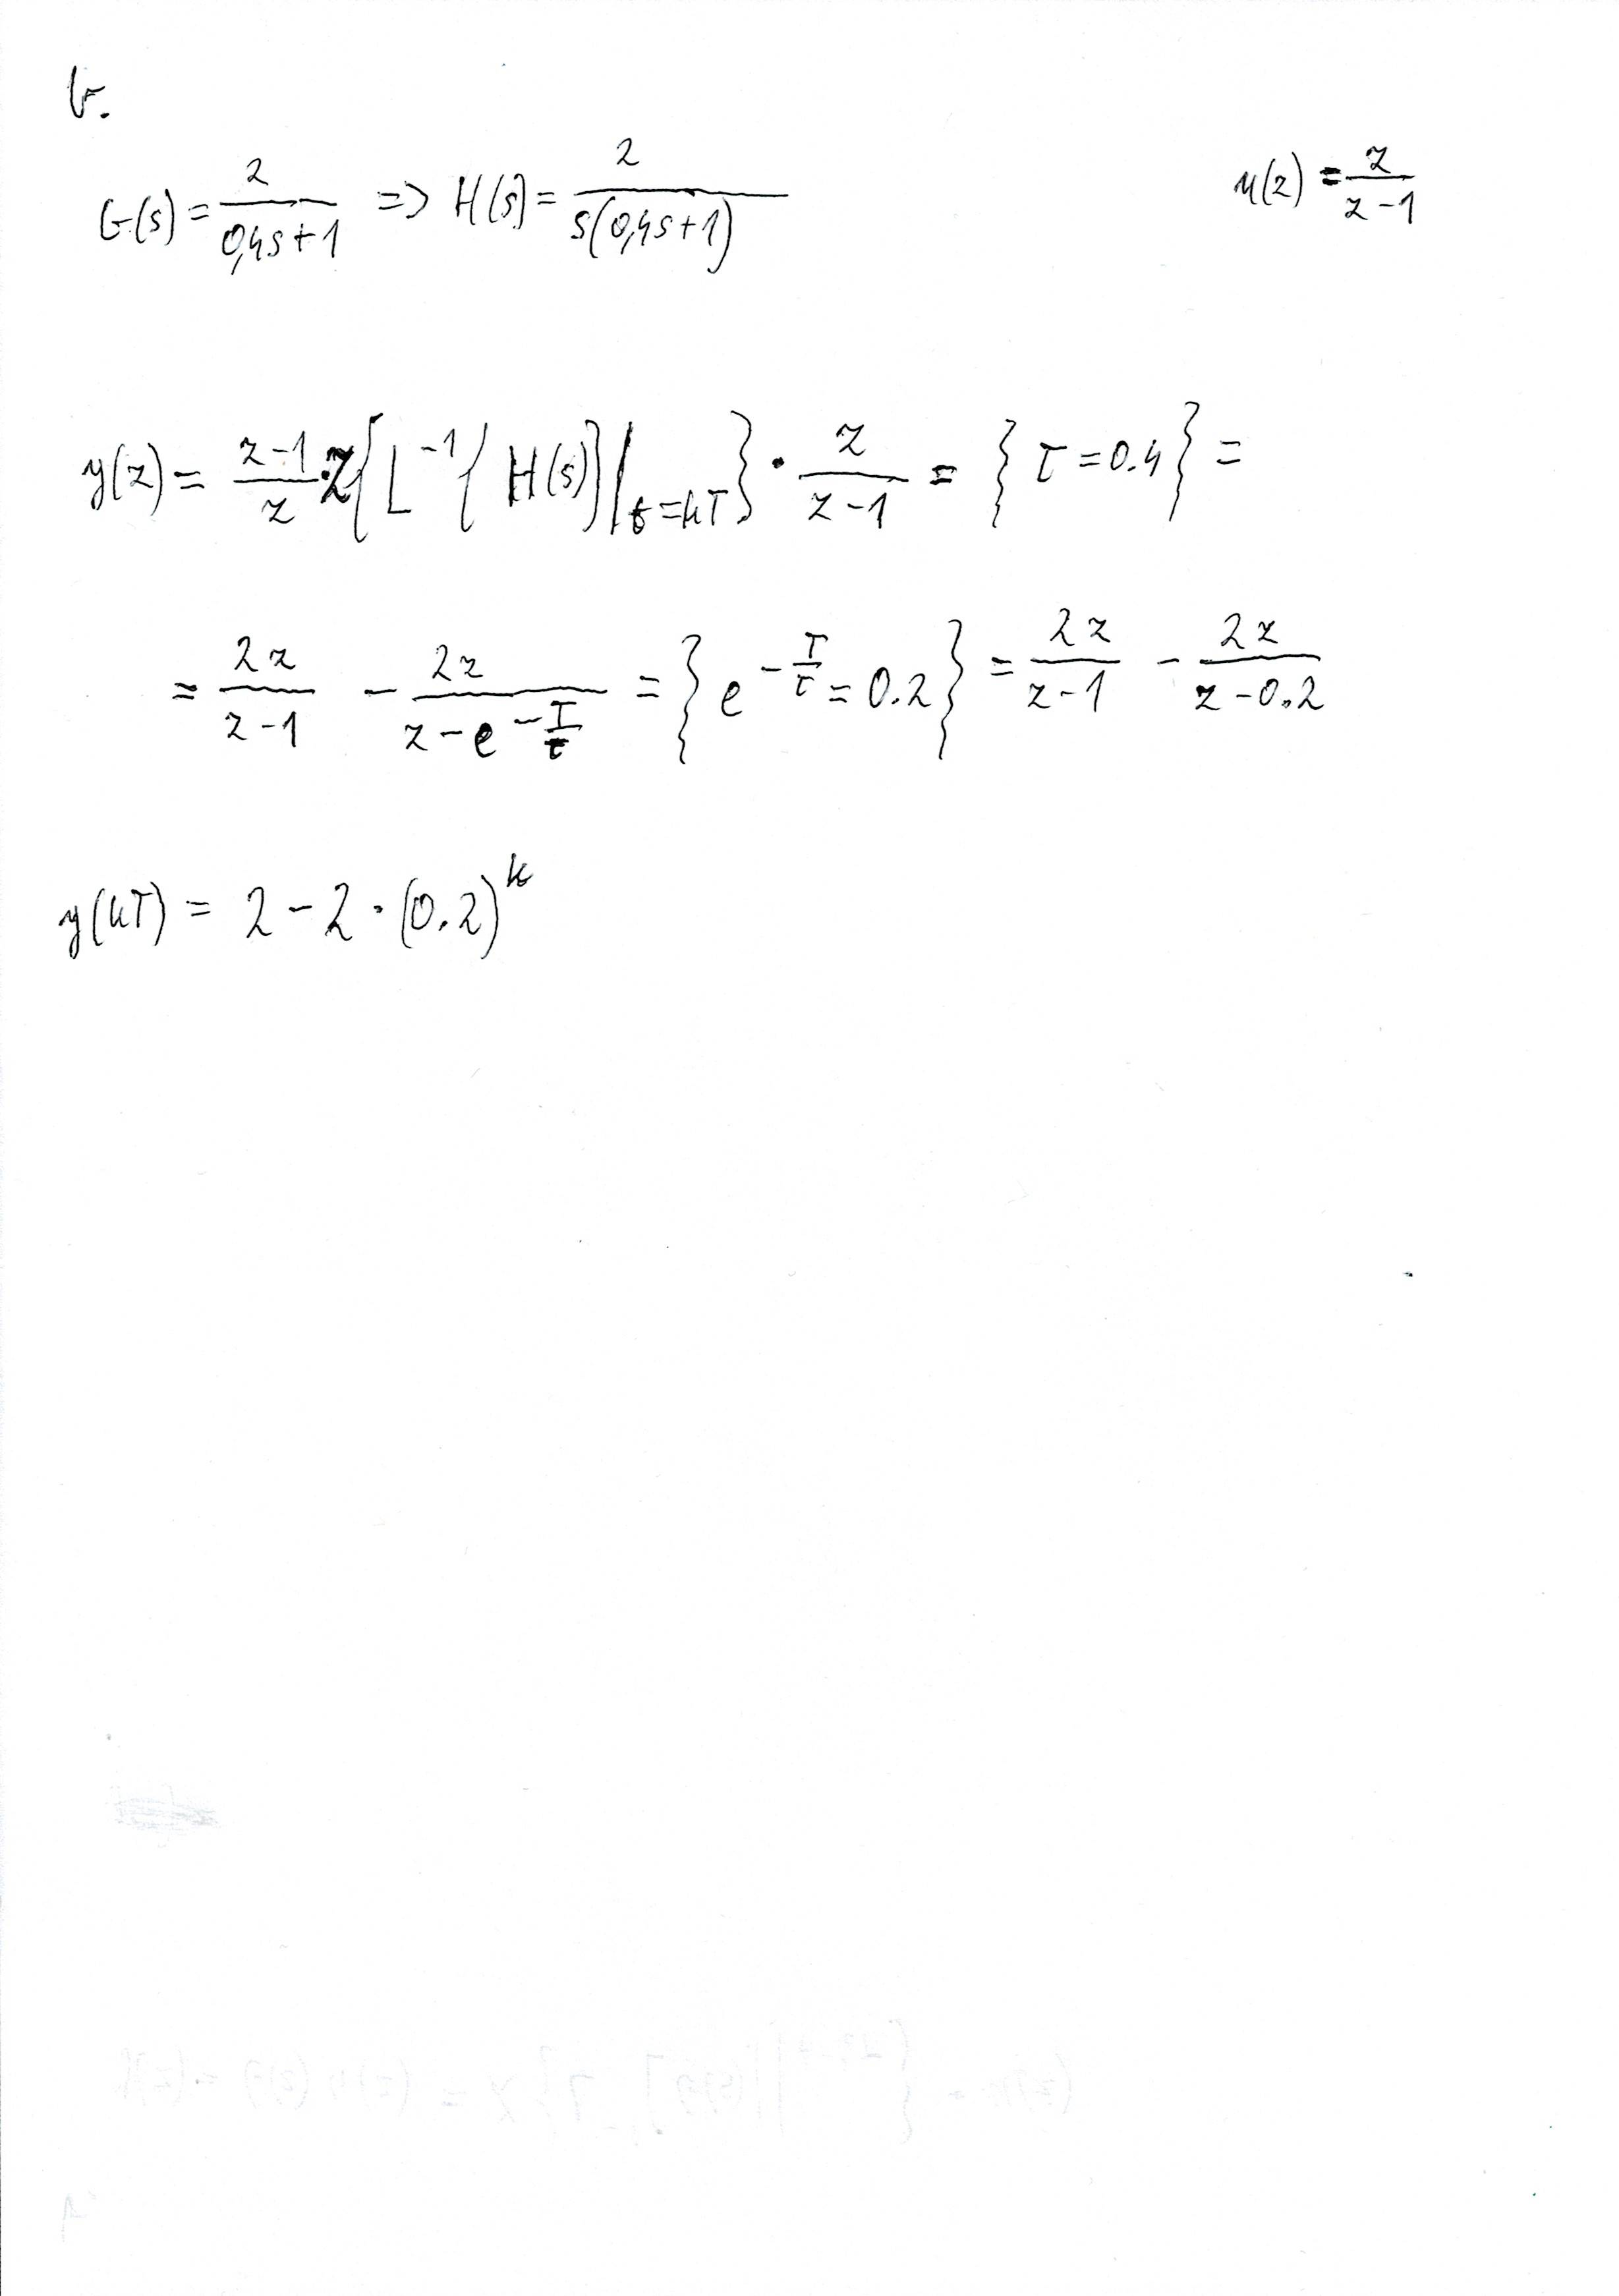 b.
G(s) = 2/(0,4s+1) => H(s) = 2/(s(0,4s+1)) u(z) = z/(z-1)
y(z) = (z-1)/z · Z{L^-1{H(s)}|t=kT} · z/(z-1) = {τ=0.4} =
= 2z/(z-1) - 2z/(z-e^(-T/τ)) = {e^(-T/τ) = 0.2} = 2z/(z-1) - 2z/(z-0.2)
y(kT) = 2-2·(0.2)^k